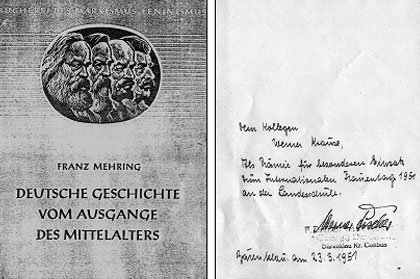 BÜCHEREI DES MARXISMUS-LENINISMUS
FRANZ MEHRING
DEUTSCHE GESCHICHTE
VOM AUSGANGE
DES MITTELALTERS
Dem Kollegen
Werner Krause,
Als Prämie für besonderen Einsatz
zum Internationalen Frauentag 1951
an der Landesschule.
Bärenklau Kr. Cottbus
Bärenklau, am 23.3.1951